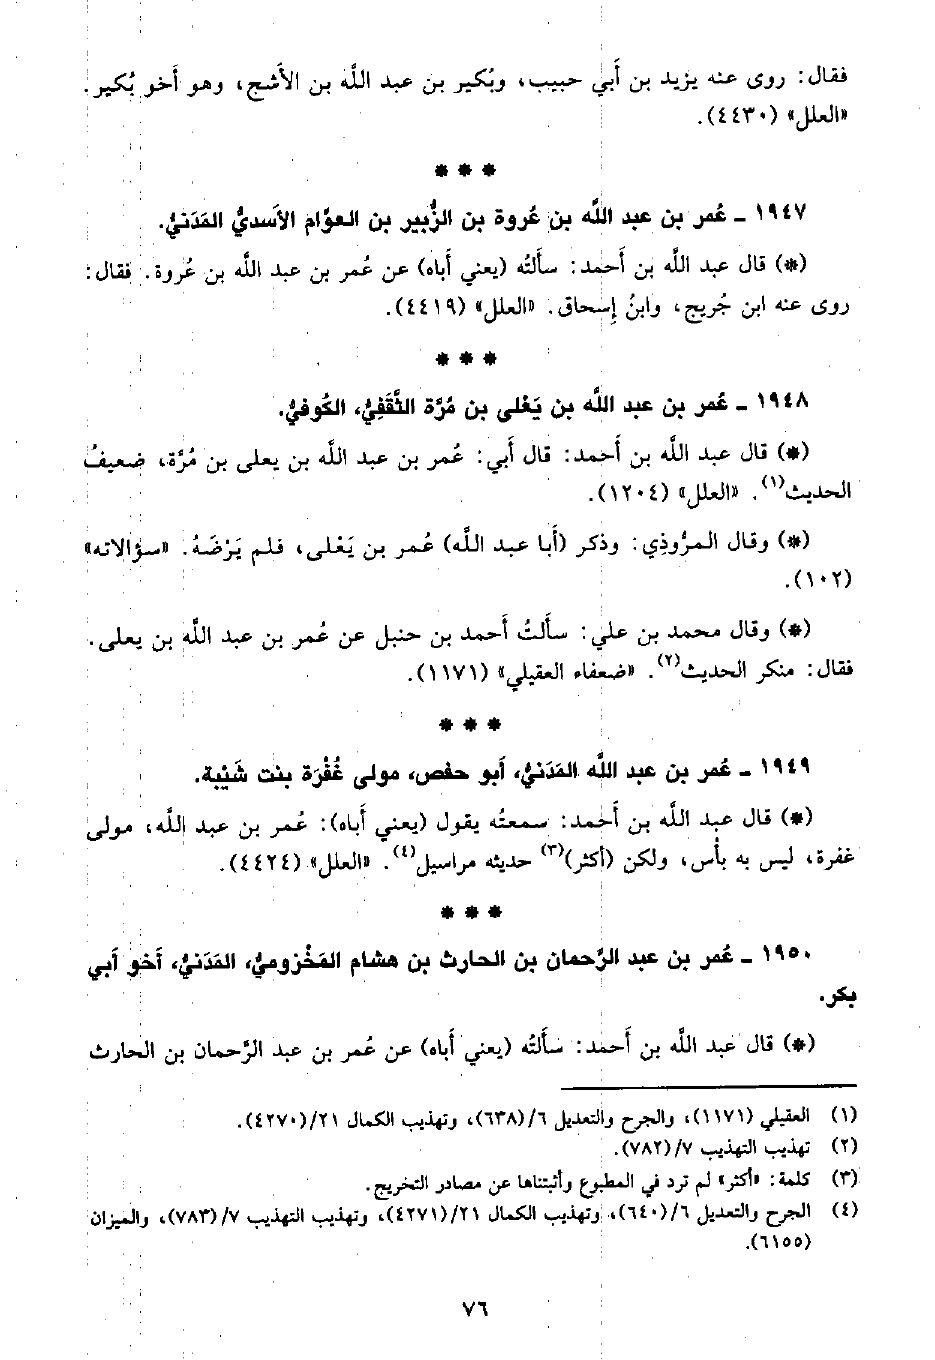 فقال: روى عنه يزيد بن أَبي حبيب، وبُكير بن عبد اللَّه بن الأشَج، وهو أَخو بُكير.
«العلل» (٤٤٣٠).
* * *
١٩٤٧ ـ عُمر بن عبد اللَّه بن عُروة بن الزُّبير بن العوَّام الأَسديُّ المَدَنيُّ.
(*) قال عبد اللَّه بن أَحمد: سأَلتُه (يعني أَباه) عن عُمر بن عبد اللَّه بن عُروة. فقال:
روى عنه ابن جُريج، وابنُ إِسحاق. «العلل» (٤٤١٩).
* * *
١٩٤٨ ـ عُمر بن عبد اللَّه بن يَعْلى بن مُرَّة الثَّقَفِيُّ، الكُوفيُّ.
(*) قال عبد اللَّه بن أَحمد: قال أَبي: عُمر بن عبد اللَّه بن يعلى بن مُرَّة، ضعيفُ
الحديث(١). «العلل» (١٢٠٤).
(*) وقال المرُّوذِي: وذكر (أَبا عبد اللَّه) عُمر بن يَعْلى، فلم يَرْضَهُ. «سؤالاته»
(١٠٢).
(*) وقال محمد بن علي: سأَلتُ أَحمد بن حنبل عن عُمر بن عبد اللَّه بن يعلى.
فقال: منكر الحديث(٢). «ضعفاء العقيلي» (١١٧١).
* * *
١٩٤٩ ـ عُمر بن عبد اللَّه المَدَنيُّ، أَبو حفص، مولى غُفْرَة بنت شَيْبة.
(*) قال عبد اللَّه بن أَحمد: سمعتُه يقول (يعني أَباه): عُمر بن عبد اللَّه، مولى
غفرة، ليس به بأْس، ولكن (أكثر)(٣) حديثه مراسيل(٤). «العلل» (٤٤٢٤).
* * *
١٩٥٠ ـ عُمر بن عبد الرَّحمان بن الحارث بن هشام المَخْزوميُّ، المَدَنيُّ، أَخو أَبي
بكر.
(*) قال عبد اللَّه بن أَحمد: سأَلتُه (يعني أَباه) عن عُمر بن عبد الرَّحمان بن الحارث
(١) العقيلي (١١٧١)، والجرح والتعديل ٦/(٦٣٨)، وتهذيب الكمال ٢١/(٤٢٧٠).
(٢) تهذيب التهذيب ٧/(٧٨٢).
(٣) كلمة: «أكثر» لم ترد في المطبوع وأثبتناها عن مصادر التخريج.
(٤) الجرح والتعديل ٦/(٦٤٠)، وتهذيب الكمال ٢١/(٤٢٧١)، وتهذيب التهذيب ٧/(٧٨٣)، والميزان
(٦١٥٥).
٧٦